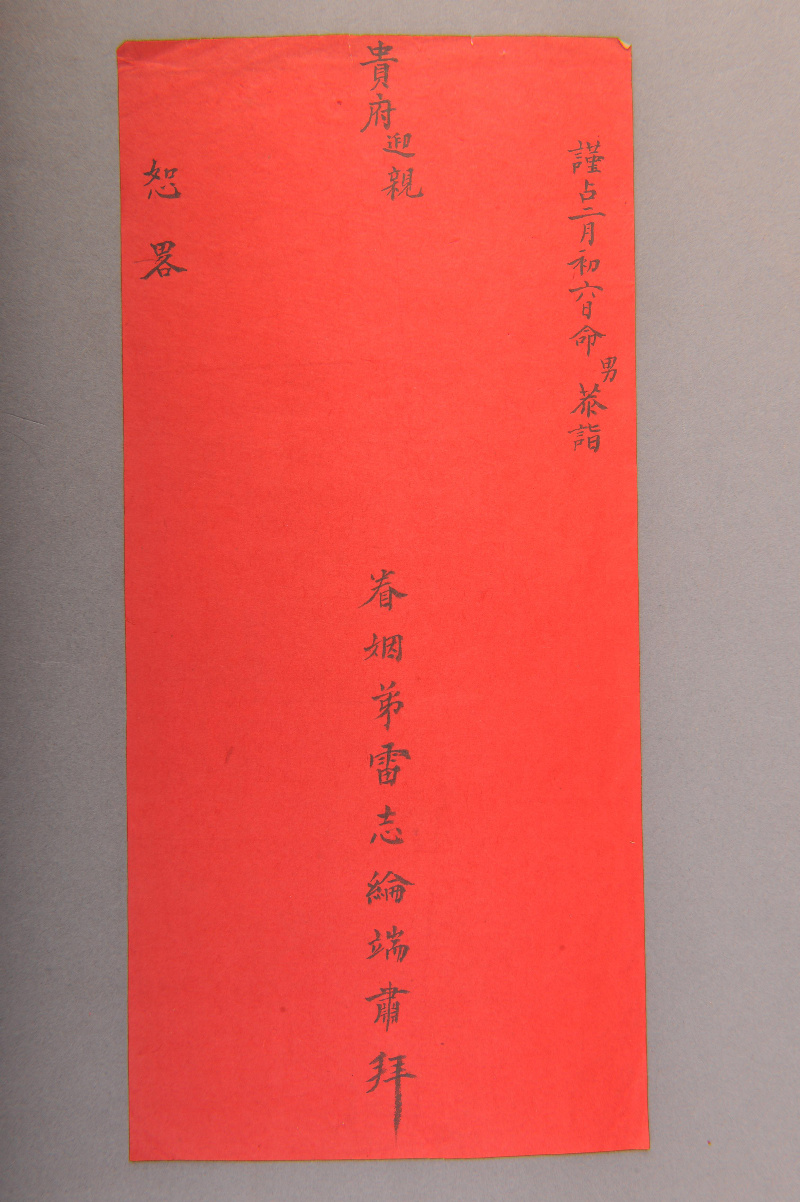 謹占二月初六日命男恭詣
貴府迎親
眷姻弟雷志綸端肅拜
恕畧